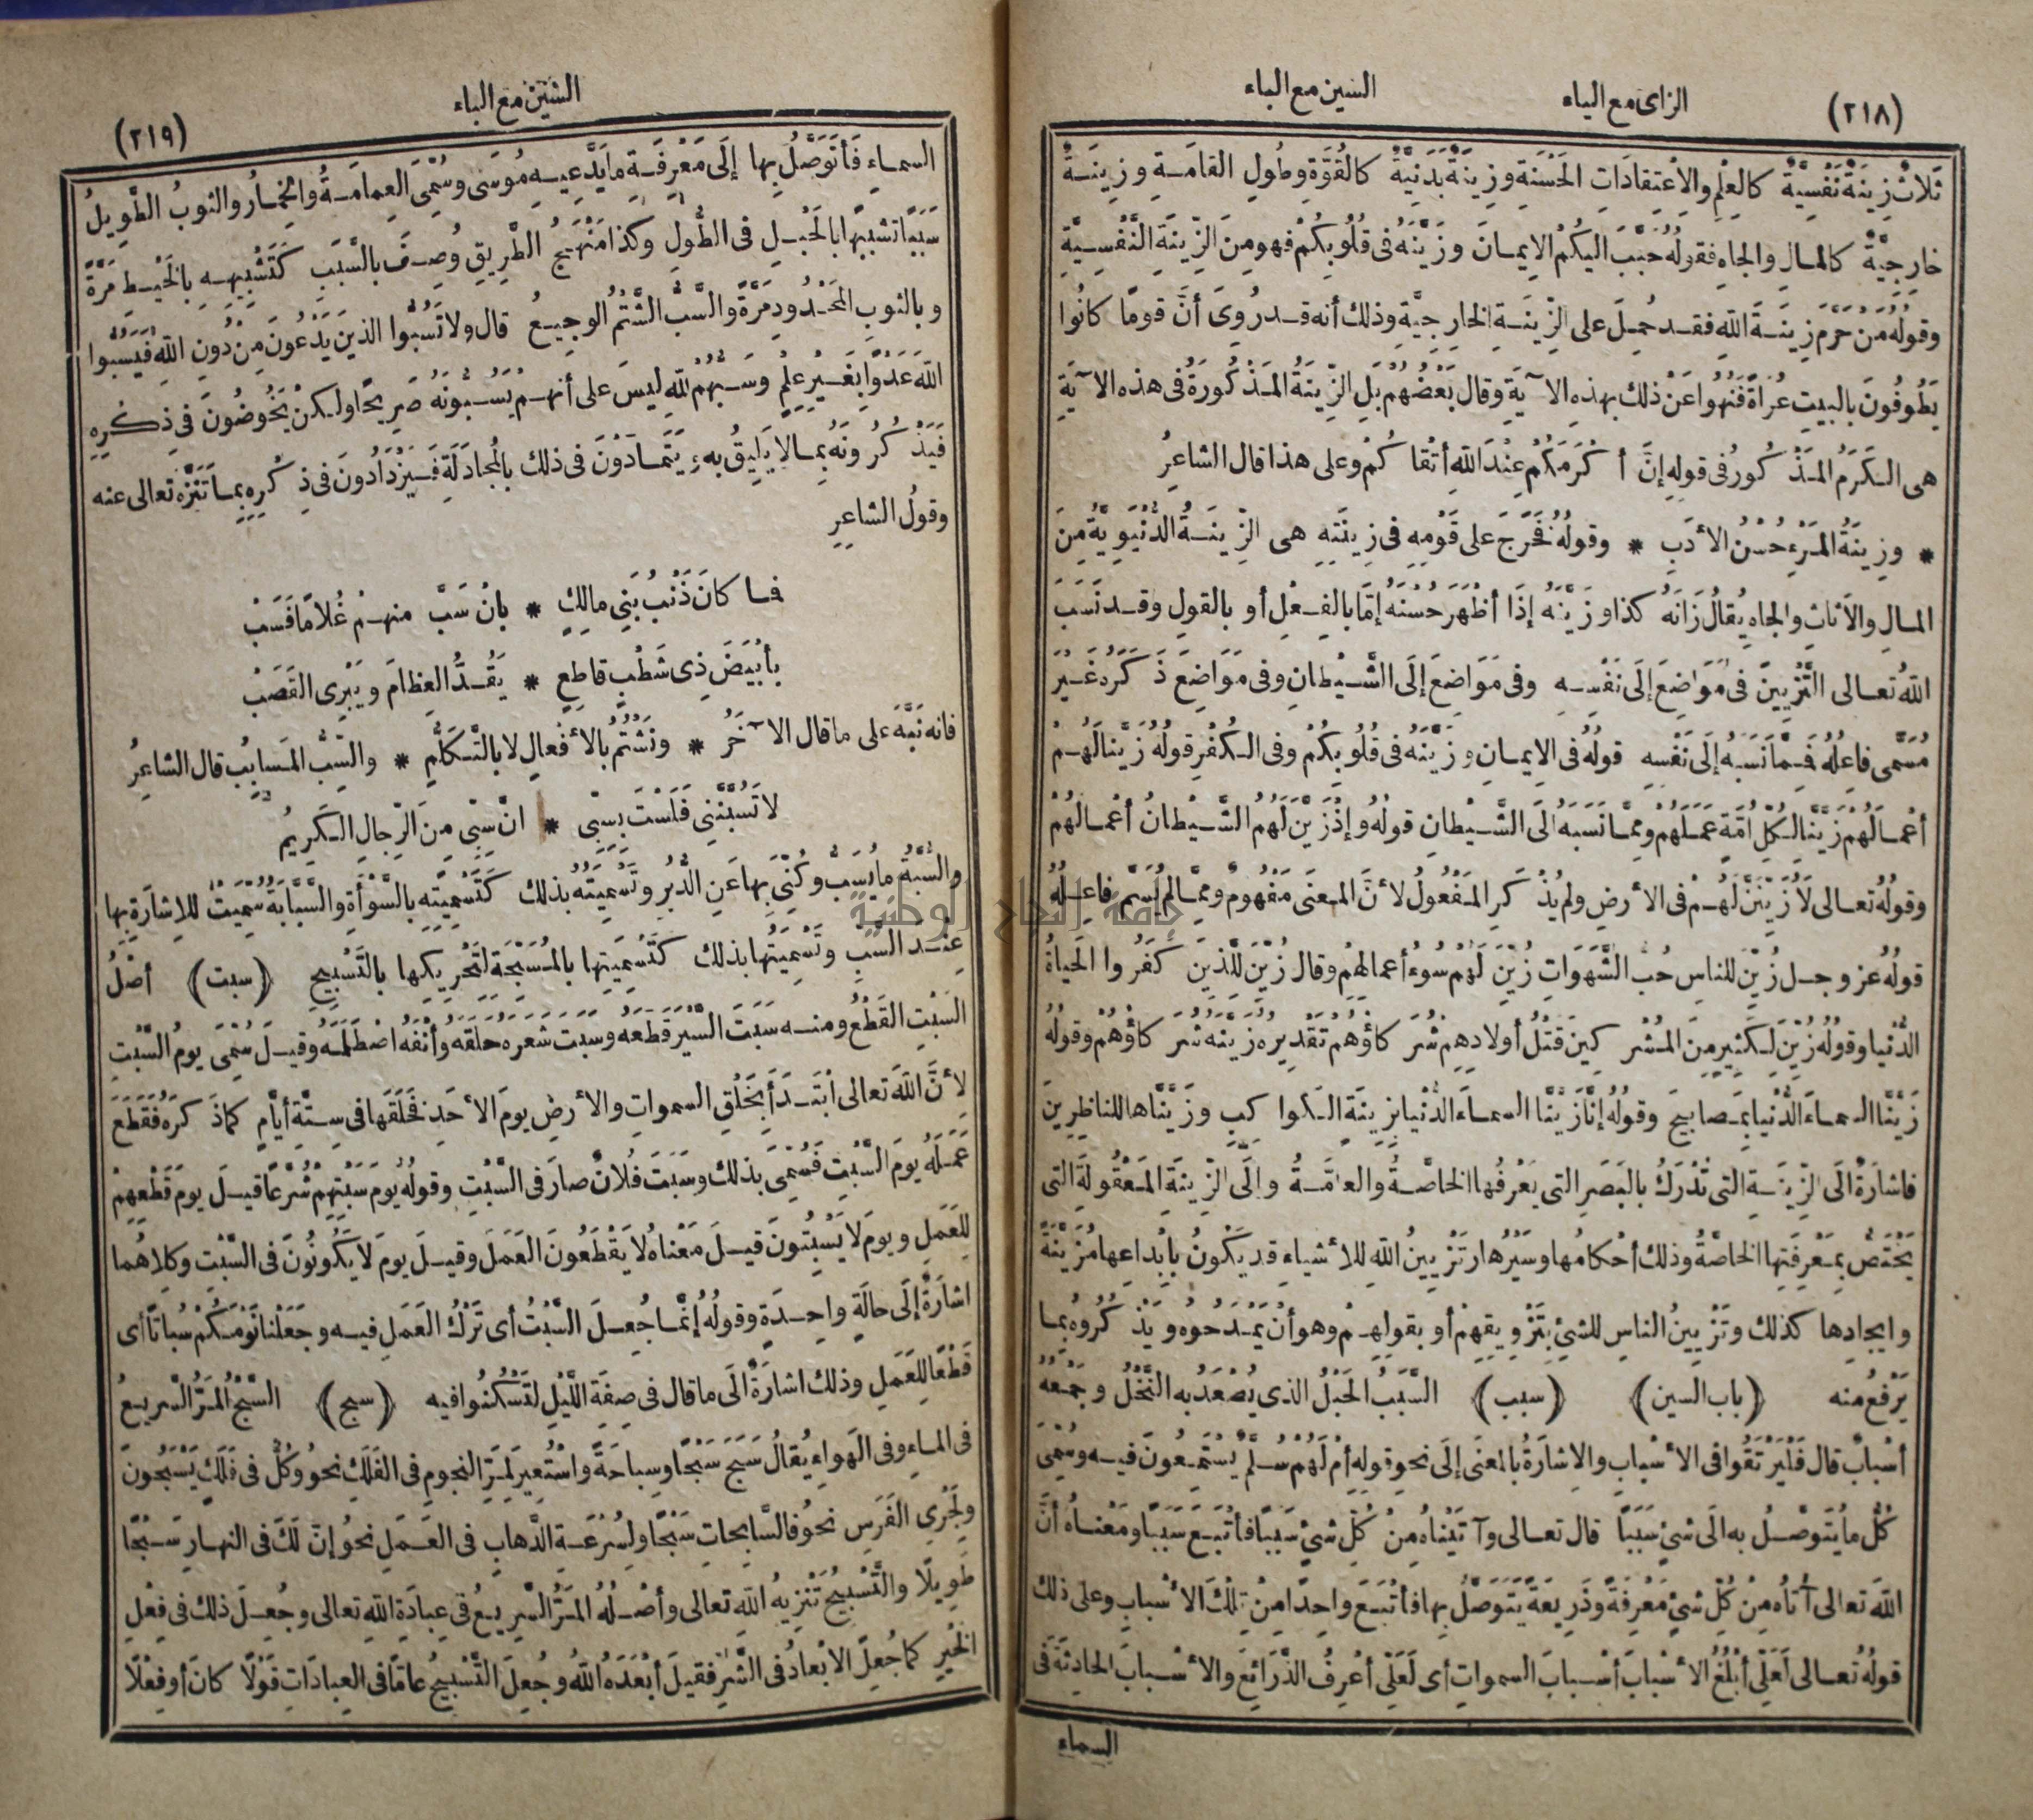 (٢١٨) الزاى مع الياء السين مع الباء
ثَلاثٌ زِينَةٌ نَفْسِيَّةٌ كالعِلْمِ والاعْتِقادَاتِ الحَسَنَةِ وزِينَةٌ بَدَنِيَّةٌ كالقُوَّةِ وطُولِ القامَةِ وزِينَةٌ
خارِجِيَّةٌ كالمالِ والجاهِ فقولُهُ حَبَّبَ اليكُمُ الايمانَ وزَيَّنَهُ فى قُلُوبِكُمْ فهو مِنَ الزِّينَةِ النَّفْسِيَّةِ
وقولُهُ مَنْ حَرَّمَ زِينَةَ اللهِ فقد حُمِلَ على الزِّينَةِ الخارِجِيَّةِ وذلك أنه قد رُوِىَ أنَّ قومًا كانُوا
يَطُوفُونَ بالبيتِ عُراةً فَنُهُوا عَنْ ذلك بهذهِ الآيَةِ وقال بَعْضُهُمْ بَلِ الزِّينَةُ المَذْكُورَةُ فى هذه الآيَةِ
هى الكَرَمُ المَذْكُورُ فى قولِهِ إنَّ أكْرَمَكُمْ عِنْدَ اللهِ أتْقاكُمْ وعلى هذا قال الشاعِرُ
* وزِينَةُ المَرْءِ حُسْنُ الأدَبِ * وقولُهُ فَخَرَجَ على قَوْمِهِ فى زِينَتِهِ هى الزِّينَةُ الدُّنْيَوِيَّةُ مِنَ
المالِ والأثاثِ والجاهِ يُقالُ زَانَهُ كذا وزَيَّنَهُ إذَا أظْهَرَ حُسْنَهُ إمَّا بالفِعْلِ أو بالقولِ وقد نَسَبَ
اللهُ تعالى التَّزْيِينَ فى مَوَاضِعَ إلَى نَفْسِهِ وفى مَوَاضِعَ إلَى الشَّيْطانِ وفى مَوَاضِعَ ذَكَرَهُ غَيْرَ
مُسَمًّى فاعِلُهُ فَمِمَّا نَسَبَهُ إلَى نَفْسِهِ قولُهُ فى الايمانِ وزَيَّنَهُ فى قلُوبِكُمْ وفى الكُفْرِ قولُهُ زَيَّنا لَهُمْ
أعْمالَهُمْ زَيَّنا لكُلِّ امَّةٍ عَمَلَهُمْ ومِمَّا نَسَبَهُ الَى الشَّيْطانِ قولُهُ وإذْ زَيَّنَ لَهُمُ الشَّيْطانُ أعْمالَهُمْ
وقولُهُ تعالى لَأُزَيِّنَنَّ لَهُمْ فى الأرضِ ولم يُذْكَرِ المَفْعُولُ لأنَّ المعنَى مَفْهُومٌ ومِمَّا لم يُسَمَّ فاعِلُهُ
قولُهُ عز وجل زُيِّنَ للناسِ حُبُّ الشَّهَوَاتِ زُيِّنَ لَهُمْ سُوءُ أعمالهِمْ وقال زُيِّنَ لِلَّذِينَ كَفَرُوا الحَياةُ
الدُّنْيا وقولُهُ زُيِّنَ لِكَثِيرٍ مِنَ المُشْرِكِينَ قَتْلُ أولادِهِمْ شُرَكاؤُهُمْ تَقْدِيرُهُ زَيَّنَهُ شُرَكاؤُهُمْ وقولُهُ
زَيَّنَّا السماءَ الدُّنْيا بِمَصابِيحَ وقولُهُ إنَّا زَيَّنَّا السماءَ الدُّنْيا بِزِينَةٍ الكَواكِبِ وزَيَّنَّاها للناظِرِينَ
فاشارَةٌ الَى الزِّينَةِ التى تُدْرَكُ بالبَصَرِ التى يَعْرِفُها الخاصَّةُ والعامَّةُ والَى الزِّينَةِ المَعْقُولَةِ التى
يَخْتَصُّ بِمَعْرِفَتِها الخاصَّةُ وذلك أحْكامُها وسَيْرُها وتَزْيِينُ اللهِ للأشياءِ قد يَكُونُ بِابْداعِها مُزَيَّنَةً
وايجادِها كذلك وتَزْيِينُ الناسِ للشئِ بِتَزْوِيقِهِمْ أو بقولِهِمْ وهو أنْ يَمْدَحُوهُ ويَذْكُرُوهُ بما
يَرْفَعُ منه (باب السين) (سبب) السَّبَبُ الحَبْلُ الذى يُصْعَدُ به النَّخْلُ وجَمْعُهُ
أسْبابٌ قال فَلْيَرْتَقُوا فى الأسْبابِ والاِشارَةُ بالمعنَى إلَى نحوِ قولِهِ أمْ لَهُمْ سُلَّمٌ يَسْتَمِعُونَ فيه وسُمِّىَ
كُلُّ ما يُتَوَصَّلُ به الَى شئٍ سَبَبًا قال تعالى وآتَيْناهُ مِنْ كُلِّ شئٍ سَبَبًا فأتْبَعَ سَبَبًا ومَعْناهُ أنَّ
اللهَ تعالى آتاهُ مِنْ كُلِّ شئٍ مَعْرِفَةً وذَرِيعَةً يَتَوَصَّلُ بِها فأتْبَعَ واحِدًا مِنْ تِلْكَ الأسْبابِ وعلى ذلك
قولُهُ تعالى لَعَلِّى أبْلُغُ الأسْبابَ أسْبابَ السمواتِ أى لَعَلِّى أعْرِفُ الذَّرَائِعَ والأسْبابَ الحادِثَةَ فى
السماء
الشين مع الباء (٢١٩)
السماءِ فَأتَوَصَّلُ بِها إلَى مَعْرِفَةِ ما يَدَّعِيهِ مُوسَى وسُمِّىَ العِمامَةُ والخِمارُ والثوبُ الطَّوِيلُ
سَبَبًا تشبيهًا بالحَبْلِ فى الطُّولِ وكذا مَنْهَجُ الطَّرِيقِ وُصِفَ بالسَّبَبِ كَتَشْبِيهِهِ بالخَيْطِ مَرَّةً
وبالثوبِ المَمْدُودِ مَرَّةً والسَّبُّ الشَّتْمُ الوجِيعُ قال ولا تَسُبُّوا الذينَ يَدْعُونَ مِنْ دُونِ اللهِ فَيَسُبُّوا
اللهَ عَدْوًا بِغَيْرِ عِلْمٍ وسَبُّهُمْ للهِ ليسَ على أنهمْ يَسُبُّونَهُ صَرِيحًا ولكنْ يَخُوضُونَ فى ذِكْرِهِ
فَيَذْكُرُونَهُ بما لا يَلِيقُ به ويَتَمادَوْنَ فى ذلك بالمُجادَلَةِ فَيَزْدَادُونَ فى ذِكْرِهِ بما تَنَزَّهَ تعالى عنه
وقولُ الشاعِرِ
فما كانَ ذَنْبُ بَنِى مالِكٍ * بانْ سَبَّ منهمْ غُلامًا فَسَبْ
بأبْيَضَ ذِى شَطْبٍ قاطِعٍ * يَقُدُّ العِظامَ ويَبْرِى القَصَبْ
فانه نَبَّهَ على ما قال الآخَرُ * ونَشْتُمُ بالأفعالِ لا بالتَّكَلُّمِ * والسِّبُّ المَسابِبُ قال الشاعِرُ
لا تَسُبَّنَّنِى فَلَسْتَ بِسِبِّى * انَّ سِبِّى مِنَ الرِّجالِ الكَرِيمُ
والسُّبَّةُ ما يُسَبُّ وكُنِّىَ بها عَنِ الدُّبُرِ وتَسْمِيَتُهُ بذلك كَتَسْمِيَتِهِ بالسَّوْأةِ والسَّبَّابَةُ سُمِّيَتْ للاِشارَةِ بها
عِنْدَ السَّبِّ وتَسْمِيَتُها بذلك كَتَسْمِيَتِها بالمُسَبِّحَةِ لتَحْرِيكِها بالتَّسْبِيحِ (سبت) أصْلُ
السَّبْتِ القَطْعُ ومنه سَبَتَ السَّيْرَ قَطَعَهُ وسَبَتَ شَعَرَهُ حَلَقَهُ وأنْفَهُ اصْطَلَمَهُ وقيلَ سُمِّىَ يومُ السَّبْتِ
لأنَّ اللهَ تعالى ابْتَدَأ بِخَلْقِ السمواتِ والأرضِ يومَ الأحَدِ فَخَلَقَها فى سِتَّةِ أيَّامٍ كما ذَكَرَهُ فَقَطَعَ
عَمَلَهُ يومَ السَّبْتِ فَسُمِّىَ بذلك وسَبَتَ فُلانٌ صارَ فى السَّبْتِ وقولُهُ يومَ سَبْتِهِمْ شُرَّعًا قيلَ يومَ قَطْعِهِمْ
لِلعَمَلِ ويومَ لا يَسْبِتُونَ قيلَ مَعْناهُ لا يَقْطَعُونَ العَمَلَ وقيلَ يومَ لا يَكُونُونَ فى السَّبْتِ وكِلاهُما
اشارَةٌ إلَى حالَةٍ واحِدَةٍ وقولُهُ إنَّما جُعِلَ السَّبْتُ أى تَرْكُ العَمَلِ فيه وجَعَلْنا نَوْمَكُمْ سُباتًا أى
قَطْعًا لِلعَمَلِ وذلك اشارَةٌ الَى ما قال فى صِفَةِ اللَّيْلِ لتَسْكُنُوا فيه (سبح) السَّبْحُ المَرُّ السريعُ
فى الماءِ وفى الهَواءِ يُقالُ سَبَحَ سَبْحًا وسِباحَةً واسْتُعِيرَ لِمَرِّ النجومِ فى الفَلَكِ نحوُ وكُلٌّ فى فَلَكٍ يَسْبَحُونَ
ولِجَرْىِ الفَرَسِ نحوُ فالسَّابِحاتِ سَبْحًا ولسُرْعَةِ الذَّهابِ فى العَمَلِ نحوُ إنَّ لَكَ فى النهارِ سَبْحًا
طَوِيلًا والتَّسْبِيحُ تَنْزِيهُ اللهِ تعالى وأصْلُهُ المَرُّ السَّرِيعُ فى عِبادَةِ اللهِ تعالى وجُعِلَ ذلك فى فِعْلِ
الخَيْرِ كما جُعِلَ الابْعادُ فى الشَّرِّ فقيلَ أبْعَدَهُ اللهُ وجُعِلَ التَّسْبِيحُ عامًّا فى العِبادَاتِ قَوْلًا كانَ أو فِعْلًا